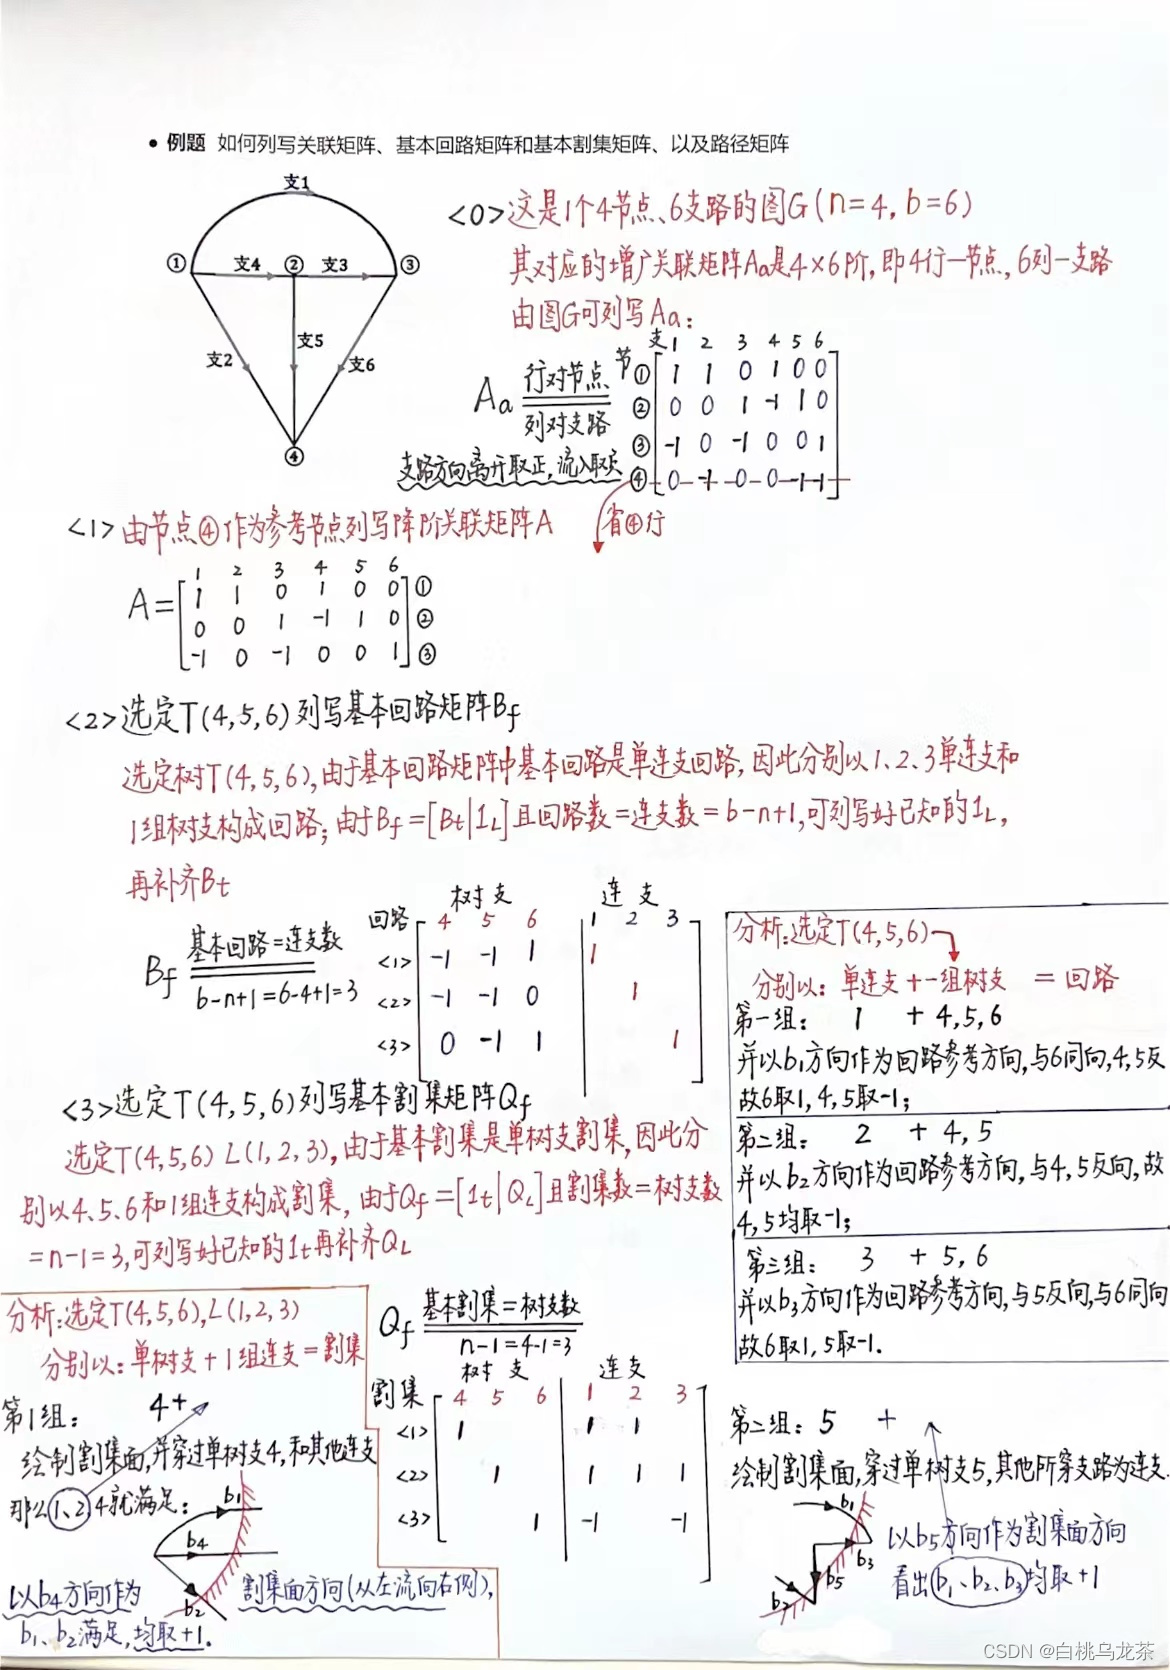 • 例题 如何列写关联矩阵、基本回路矩阵和基本割集矩阵、以及路径矩阵
支1
① 支4 ② 支3 ③
支5
支2 支6
④
<0>这是1个4节点、6支路的图G(n=4,b=6)
其对应的增广关联矩阵Aa是4×6阶,即4行—节点,6列—支路
由图G可列写Aa:
支 1 2 3 4 5 6
节① 1 1 0 1 0 0
② 0 0 1 -1 1 0
③ -1 0 -1 0 0 1
④ 0 -1 0 0 -1 -1
Aa 行对节点
列对支路
支路方向离开取正,流入取负
省④行
<1>由节点④作为参考节点列写降阶关联矩阵A
1 2 3 4 5 6
A= 1 1 0 1 0 0 ①
0 0 1 -1 1 0 ②
-1 0 -1 0 0 1 ③
<2>选定T(4,5,6)列写基本回路矩阵Bf
选定树T(4,5,6),由于基本回路矩阵中基本回路是单连支回路,因此分别以1、2、3单连支和
1组树支构成回路;由于Bf=[Bt|1L]且回路数=连支数=b-n+1,可列写好已知的1L,
再补齐Bt
树支 连支
回路 4 5 6 1 2 3
Bf 基本回路=连支数
b-n+1=6-4+1=3
<1> -1 -1 1 1
<2> -1 -1 0 1
<3> 0 -1 1 1
分析:选定T(4,5,6)
分别以: 单连支+一组树支 = 回路
第一组: 1 + 4,5,6
并以b1方向作为回路参考方向,与6同向,4,5反
故6取1,4,5取-1;
第二组: 2 + 4,5
并以b2方向作为回路参考方向,与4,5反向,故
4,5均取-1;
第三组: 3 + 5,6
并以b3方向作为回路参考方向,与5反向,与6同向
故6取1,5取-1.
<3>选定T(4,5,6)列写基本割集矩阵Qf
选定T(4,5,6) L(1,2,3),由于基本割集是单树支割集,因此分
别以4、5、6和1组连支构成割集,由于Qf=[1t|QL]且割集数=树支数
=n-1=3,可列写好已知的1t再补齐QL
Qf 基本割集=树支数
n-1=4-1=3
树支 连支
割集 4 5 6 1 2 3
<1> 1 1 1
<2> 1 1 1 1
<3> 1 -1 -1
分析:选定T(4,5,6),L(1,2,3)
分别以:单树支+1组连支=割集
第1组: 4+
绘制割集面,并穿过单树支4,和其他连支
那么1、2,4就满足:
b1
b4
b2
以b4方向作为 割集面方向(从左流向右侧),
b1、b2满足,均取+1.
第二组:5 +
绘制割集面,穿过单树支5,其他所穿支路为连支.
b1
b3
b5
b2
以b5方向作为割集面方向
看出b1、b2、b3均取+1
CSDN @白桃乌龙茶